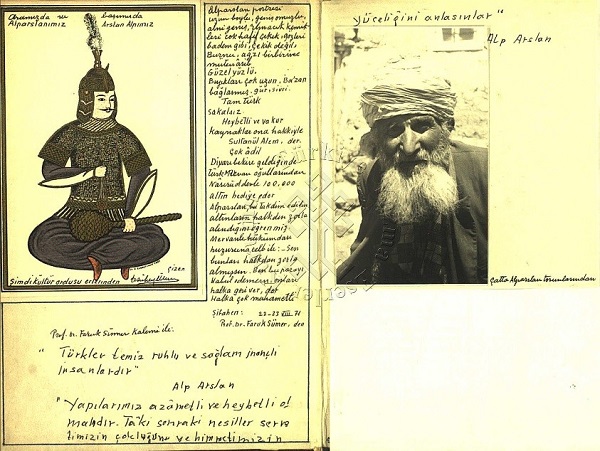 Ahamızda ve başımızda
Alparslanımız Arslan Alpımız
Şimdi kültür ordusu erlerinden
Çizen
Alparslan portresi
uzun boylu, geniş omuzlu,
alnı geniş,
leri çok hafif çekik, gözleri
badem gibi, çekik değil.
Burnu, ağzı birbirine
mütenasib
Güzel yüzlü.
Bıyıkları çok uzun. Ba'zan
bağlarmış.
Tam Türk
Sakalsız
Heybetli ve vakur
kaynaklar ona hakkiyle
Sultanül Alem, der.
Çok âdil
Diyarıbekire geldiğinde
Türk Mervan oğullarından
Nasırüddevle 100.000
altın hediye eder
Alparslan, bu takdim edilen
altınların halkdan zorla
alındığını öğrenmiş
Mervanlı hükümdarı
huzuruna celb ile: - Sen
bunları halkdan zorla
almışsın. Ben bu parayı
kabul edemem. onları
halka geri ver, der
Halka çok muhabbetli
Şifahen: 22-23 VIII. 71
Prof. Dr. Faruk Sümer, den
Prof. Dr. Faruk Sümer kalemi ile.
" Türkler temiz ruhlu ve sağlam inançlı
insanlardır"
Alp Arslan
"Yapılarımız azâmetli ve heybetli ol
malıdır. Tâki sonraki nesiller serve
timizin çokluğunu ve himmetimizin
yüceliğini anlasınlar"
Alp Arslan
Çatta Alparslan torunlarından